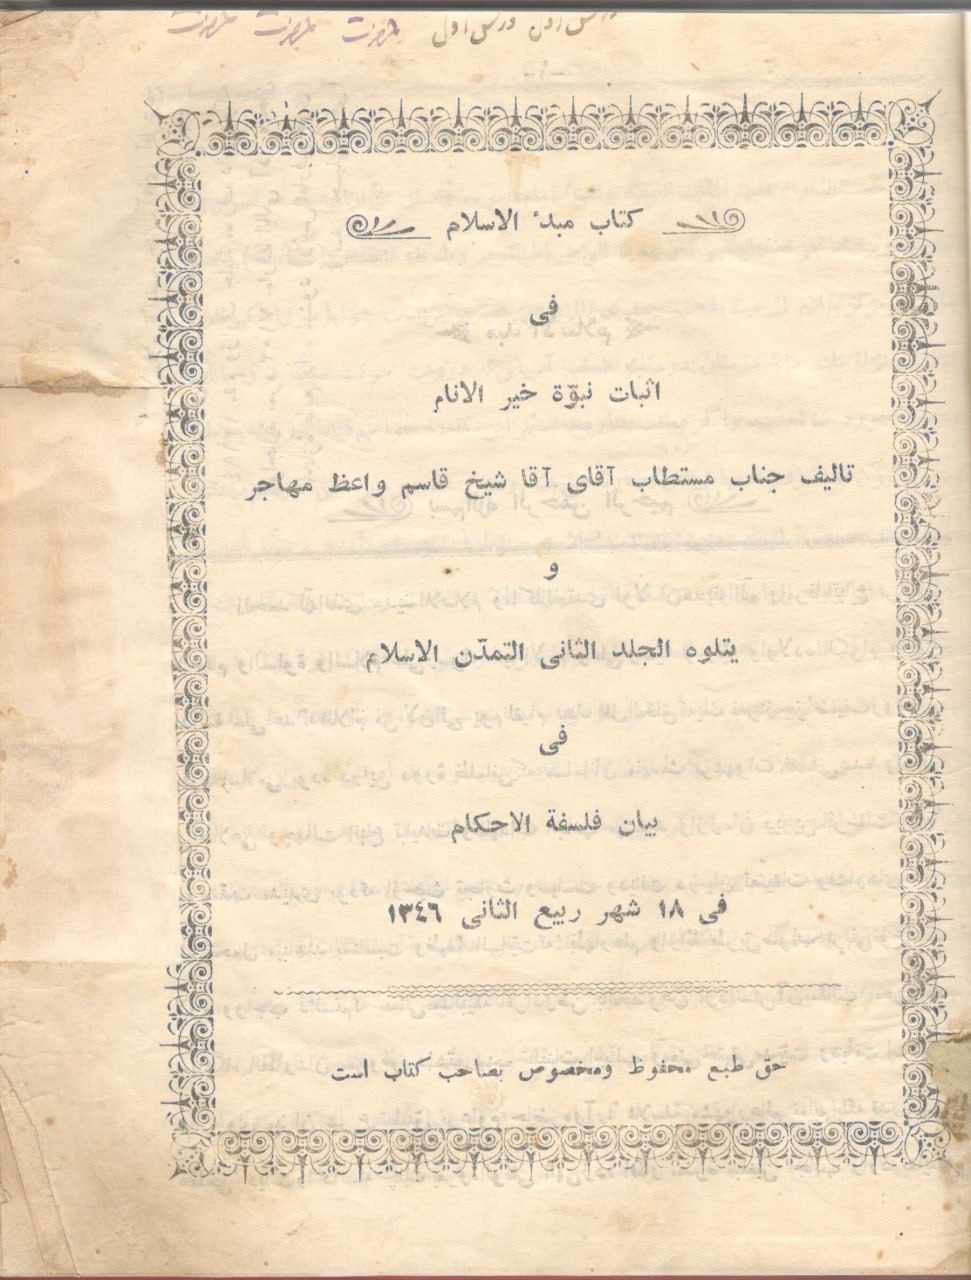 درس اول
كتاب مبدءُ الاسلام
فى
اثبات نبوّة خير الانام
تاليف جناب مستطاب آقاى آقا شيخ قاسم واعظ مهاجر
و
يتلوه الجلد الثانى التمدّن الاسلام
فى
بيان فلسفة الاحكام
فى ١٨ شهر ربيع الثانى ١٣٤٦
حق طبع محفوظ ومخصوص بصاحب كتاب است